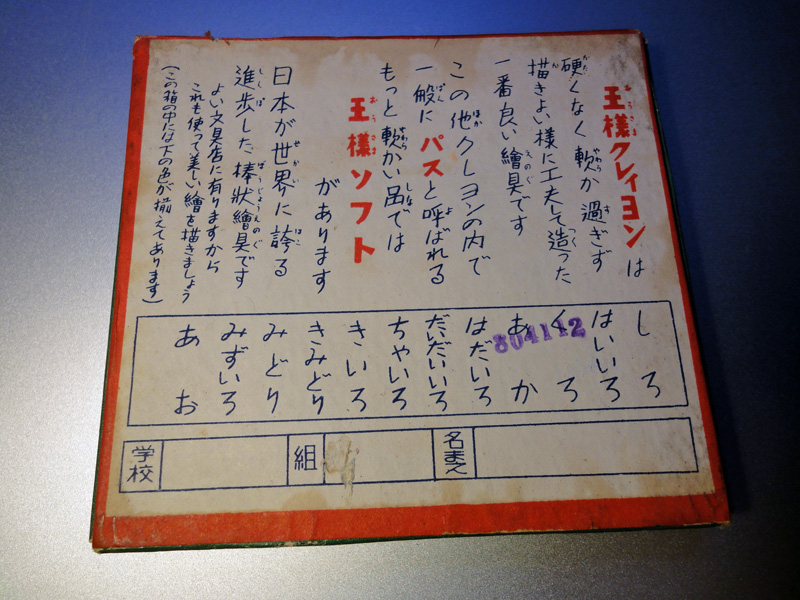 王様クレイヨンは
硬くなく軟か過ぎず
描きよい様に工夫して造った
一番良い繪具です
この他クレヨンの内で
一般にパスと呼ばれる
もっと軟かい品では
王様ソフト
があります
日本が世界に誇る
進歩した棒状繪具です
よい文具店に有りますから
これも使って美しい繪を描きましょう
(この箱の中には下の色が揃えてあります)
しろ
はいいろ
くろ
あか
はだいろ
だいだいいろ
ちゃいろ
きいろ
きみどり
みどり
みずいろ
あお
804112
学校
組
名まえ